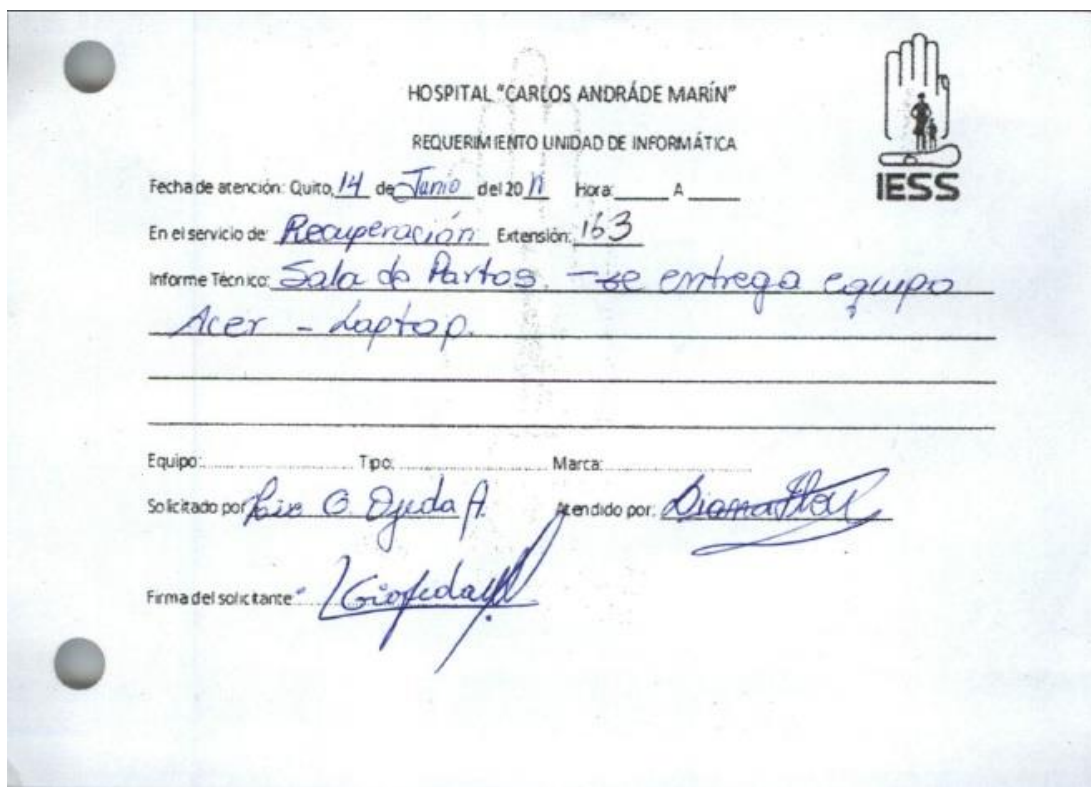 HOSPITAL "CARLOS ANDRÁDE MARÍN"
REQUERIMIENTO UNIDAD DE INFORMÁTICA
IESS
Fecha de atención: Quito, 14 de Junio del 20 11 Hora: A
En el servicio de: Recuperación Extensión: 163
Informe Técnico: Sala de Partos. - se entrega equipo
Acer - Laptop.
Equipo: Tipo: Marca:
Solicitado por G. Ojeda A. Atendido por: Diana
Firma del solicitante